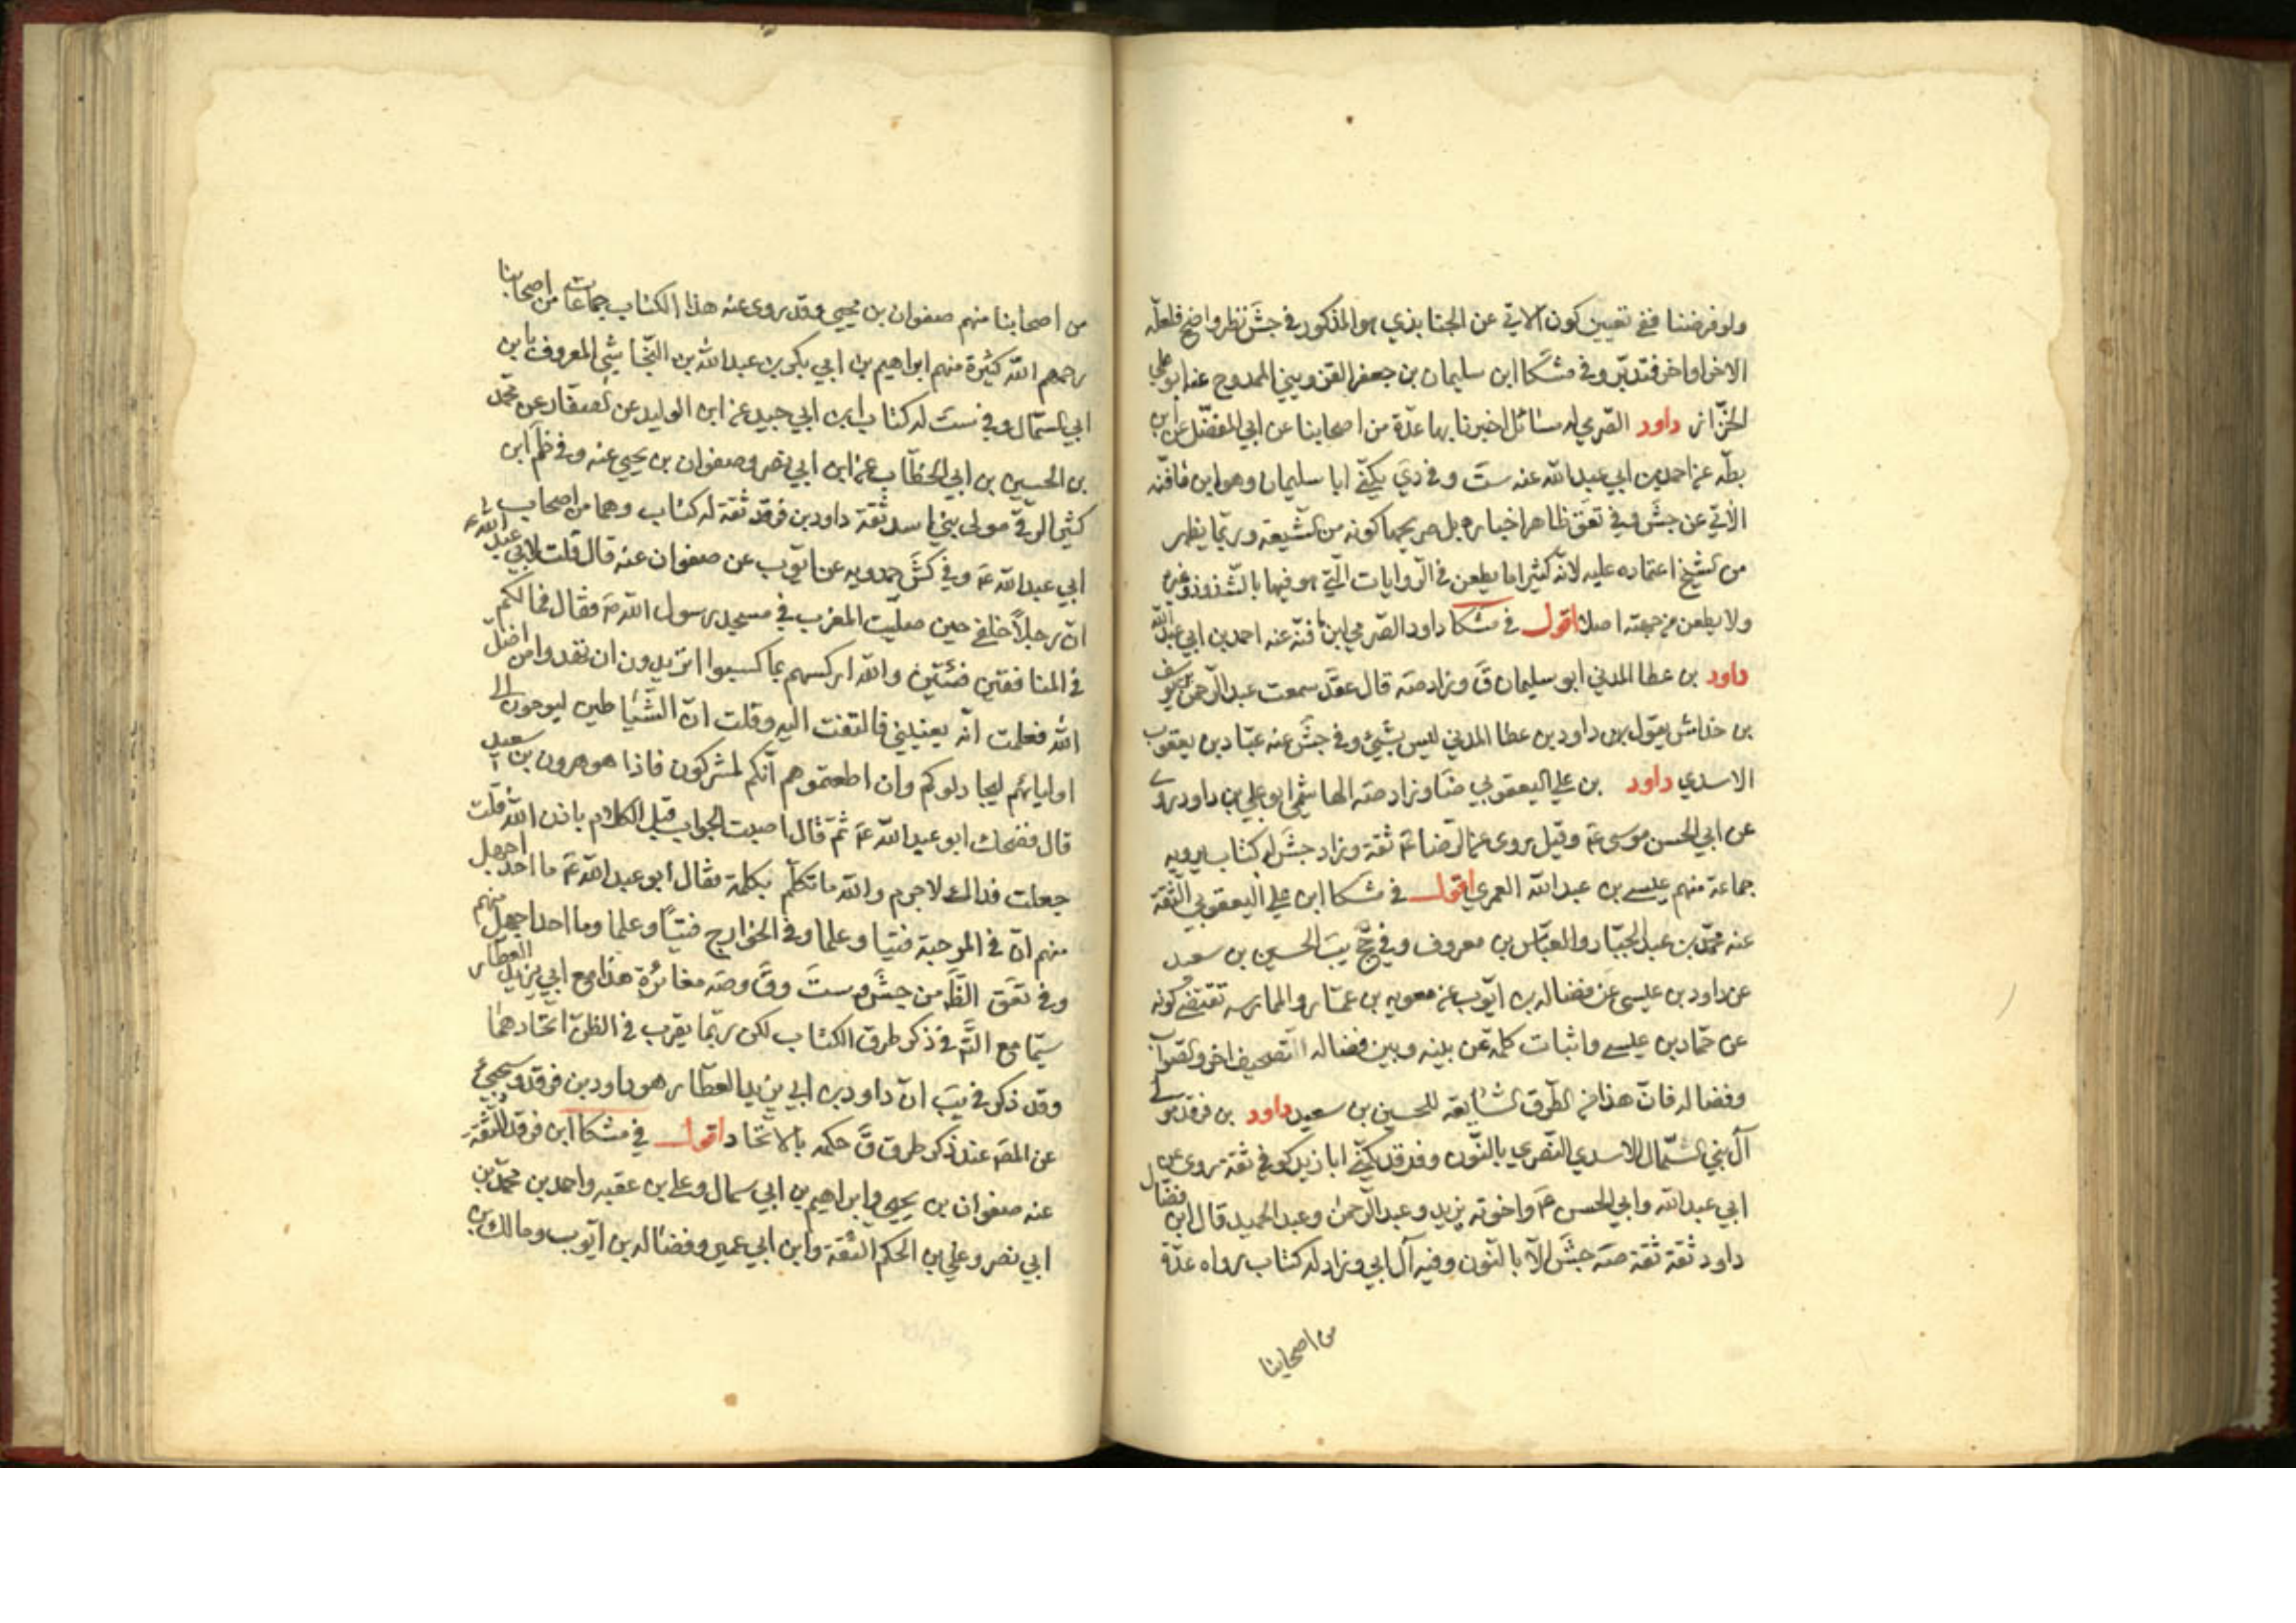 ولو فرضنا ففي تعيين كون الآتي عن الجنابذي هو المذكور في جش نظر واضح فلعله
الاخر او اخر فتدبر وفي مشكا ابن سليمان بن جعفر القزويني الممدوح عنه ابو علي
الخزاز داود الصرمي له مسائل اخبرنا بها عدة من اصحابنا عن ابي المفضل عن ابن
بطه عن احمد بن ابي عبد الله عنه ست وفي دي يكنى ابا سليمان وهو ابن مافنه
الآتي عن جش وفي تعق ظاهر اخباره بل صريحها كونه من الشيعة وربما يظهر
من الشيخ اعتماده عليه لانه كثيرا ما يطعن في الروايات التي هو فيها بالشذوذ وغيره
ولا يطعن من جهته اصلا اقول في مشكا داود الصرمي ابن مافنه عنه احمد بن ابي عبد الله
داود بن عطا المدني ابو سليمان ق وزاد صه قال عقد سمعت عبد الرحمن بن يوسف
بن خداش يقول داود بن عطا المدني ليس بشيء وفي جش عنه عباد بن يعقوب
الاسدي داود بن علي اليعقوبي ضا وزاد صه الهاشمي ابو علي بن داود روى
عن ابي الحسن موسى عم وقيل روى عن الرضا عم ثقة وزاد جش له كتاب يرويه
جماعة منهم عيسى بن عبد الله العمري اقول في مشكا ابن علي اليعقوبي الثقة
عنه محمد بن عبد الجبار والعباس بن معروف وفي حج يب الحسين بن سعيد
عن داود بن عيسى عن فضاله بن ايوب عن معويه بن عمار والممارسه تقتضي كونه
عن حماد بن عيسى واثبات كلمة عن بينه وبين فضاله تصحيف اخر والصواب
وفضاله فان هذا من الطرق الشايعه للحسين بن سعيد داود بن فرقد مولى
آل بني السمال الاسدي النصري بالنون وفرقد يكنى ابا يزيد كوفي ثقة روى عن
ابي عبد الله وابي الحسن عم واخوته يزيد وعبد الرحمن وعبد الحميد قال ابن فضال
داود ثقة ثقة صه جش الا بالنون وفيه آل ابي وزاد له كتاب رواه عدة
من اصحابنا
من اصحابنا منهم صفوان بن يحيى وقد روى عنه هذا الكتاب جماعات من اصحابنا
رحمهم الله كثيرة منهم ابراهيم بن ابي بكر بن عبد الله بن النجاشي المعروف بابن
ابي السمال وفي ست له كتاب ابن ابي جيد عن ابن الوليد عن الصفار عن محمد
بن الحسين بن ابي الخطاب عن ابن ابي نصر وصفوان بن يحيى عنه وفي ظم ابن
كثير الرقي مولى بني اسد ثقة داود بن فرقد ثقة له كتاب وهما من اصحاب
ابي عبد الله عم وفي كش حمدويه عن ايوب عن صفوان عنه قال قلت لابي عبد الله ع
ان رجلا خلفي حين صليت المغرب في مسجد رسول الله ص فقال فما لكم
في المنافقين فئتين والله اركسهم بما كسبوا اتريدون ان تهدوا من اضل
الله فعلمت انه يعنيني فالتفت اليه وقلت ان الشياطين ليوحون الى
اوليائهم ليجادلوكم وان اطعتموهم انكم لمشركون فاذا هو هرون بن سعيد
قال فضحك ابو عبد الله عم ثم قال اصبت الجواب قبل الكلام باذن الله قلت
جعلت فداك لا جرم والله ما تكلم بكلمة فقال ابو عبد الله عم ما احد اجهل
منهم ان في المرجئة فتيا وعلما وفي الخوارج فتيا وعلما وما احد اجهل منهم
وفي تعق الظ من جش وست وق وصه مغائرة هذا مع ابي يزيد العطار
سيما مع في ذكر طرق الكتاب لكن ربما يقرب في الظن اتحادهما
وقد ذكر في يب ان داود بن ابي يزيد العطار هو داود بن فرقد وسيجيئ
عن المصه عند ذكر طرق ق حكمه بالاتحاد اقول في مشكا ابن فرقد الثقة
عنه صفوان بن يحيى وابراهيم بن ابي سمال وعلي بن عقبه واحمد بن محمد بن
ابي نصر وعلي بن الحكم الثقة وابن ابي عمير وفضاله بن ايوب ومالك بن